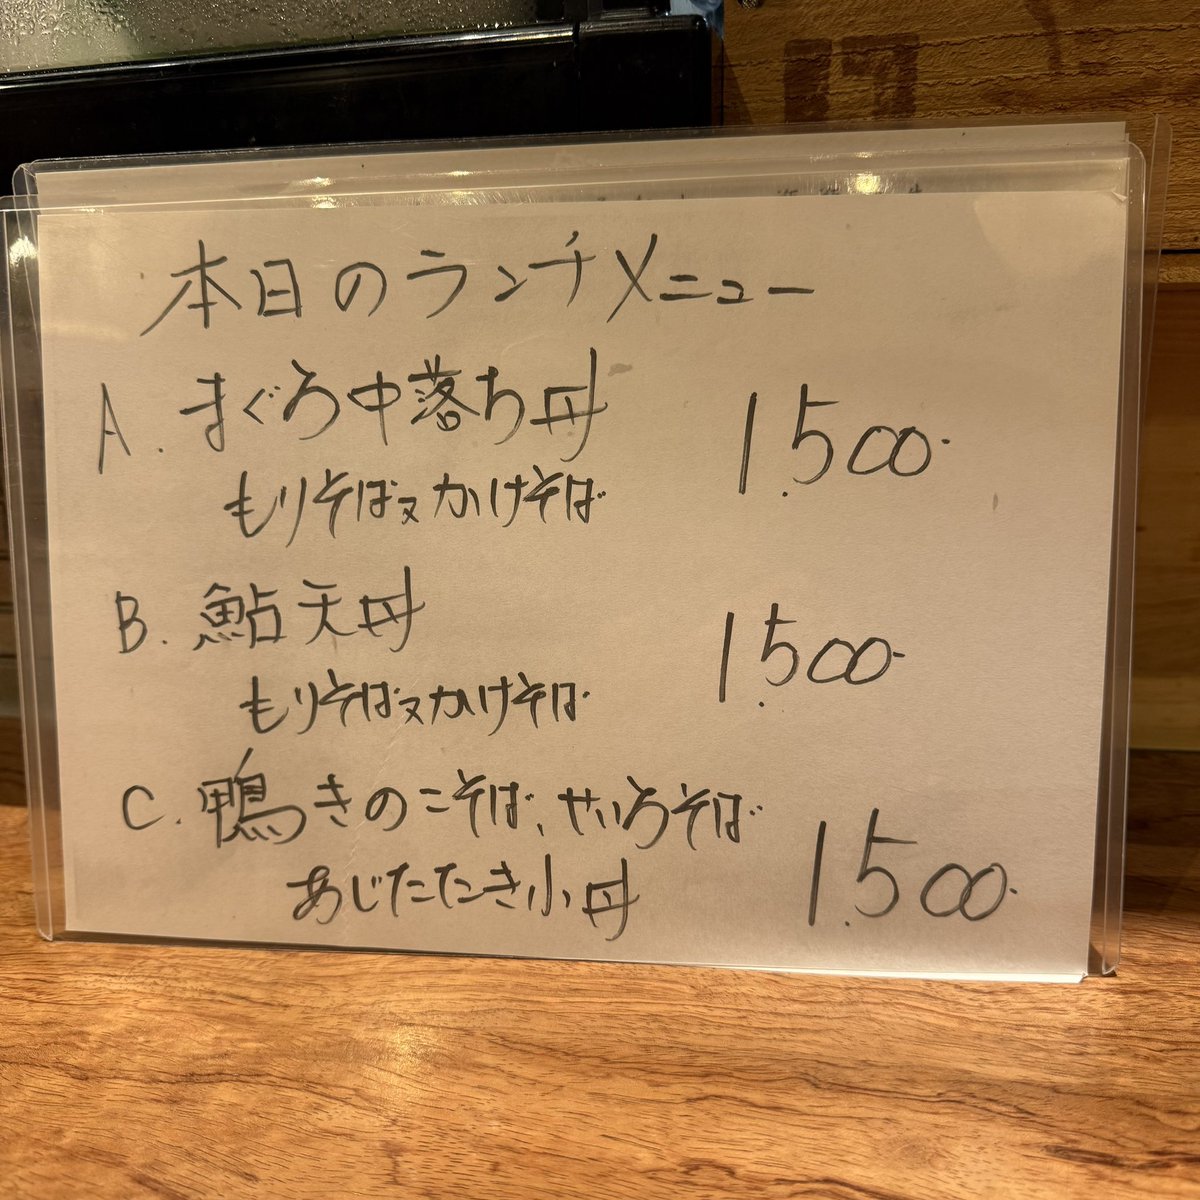 本日のランチメニュー
A. まぐろ中落ち丼 1.500-
もりそば又かけそば
B. 鮎天丼 1.500-
もりそば又かけそば
C. 鴨きのこそば、せいろそば
あじたたき小丼 1.500-